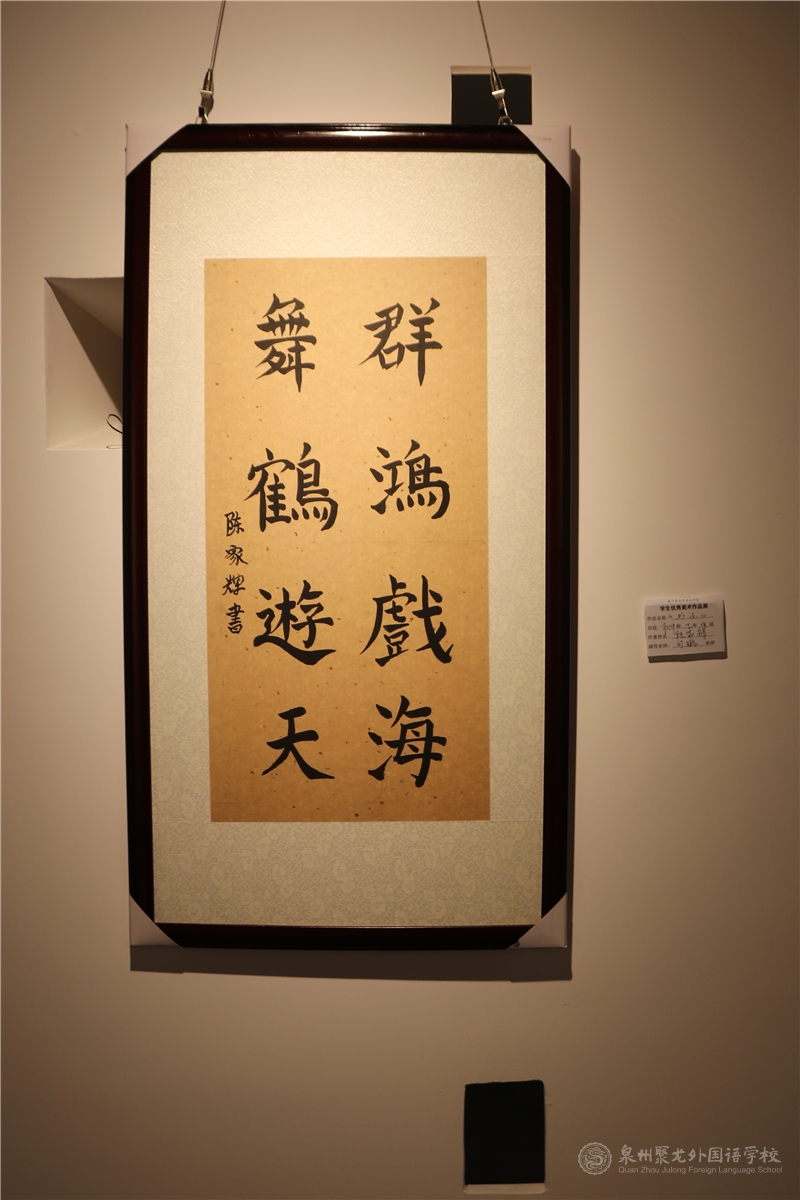 群鴻戲海
舞鶴遊天
陈家輝書
学生优秀美术作品展
作品名称:
班级:
作者姓名:
辅导老师: 老师
泉州聚龙外国语学校
Quan Zhou Julong Foreign Language School